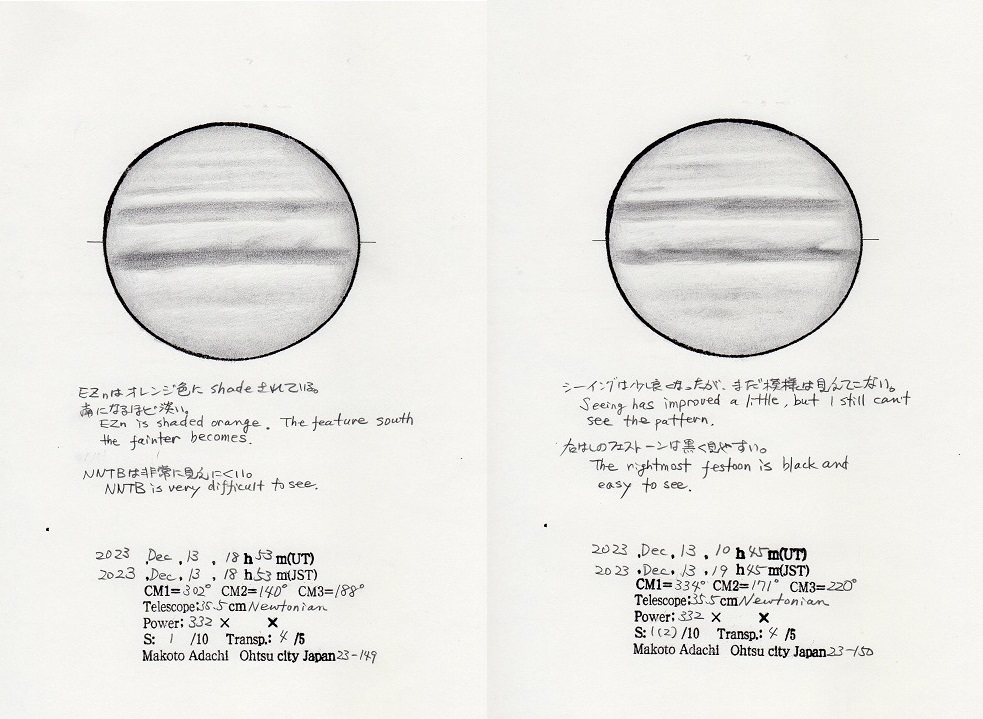 EZnはオレンジ色に shade されている。
南になるほど淡い。
EZn is shaded orange. The feature south
the fainter becomes.
NNTBは非常に見えにくい。
NNTB is very difficult to see.
2023 .Dec. 13 . 18 h 53 m(UT)
2023 .Dec. 13 . 18 h 53 m(JST)
CM1=302° CM2=140° CM3=188°
Telescope:35.5cm Newtonian
Power: 332 × ×
S: 1 /10 Transp.: 4 /5
Makoto Adachi Ohtsu city Japan 23-149
シーイングは少し良くなったが、まだ模様は見えてこない。
Seeing has improved a little, but I still can't
see the pattern.
右はしのフェストーンは黒く見やすい。
The rightmost festoon is black and
easy to see.
2023 .Dec. 13 . 10 h 45 m(UT)
2023 .Dec. 13 . 19 h 45 m(JST)
CM1=334° CM2=171° CM3=220°
Telescope:35.5cm Newtonian
Power: 332 × ×
S: 1(2) /10 Transp.: 4 /5
Makoto Adachi Ohtsu city Japan 23-150